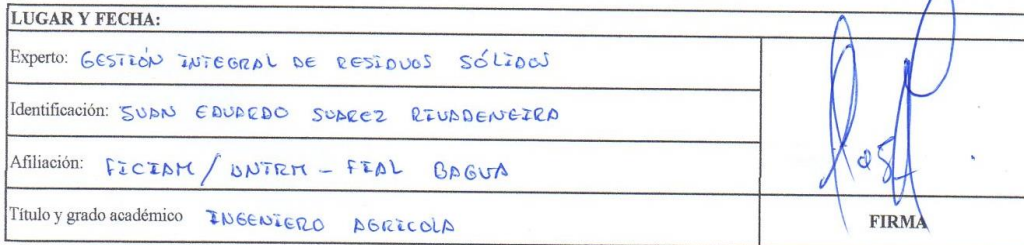 LUGAR Y FECHA:
Experto: GESTIÓN INTEGRAL DE RESIDUOS SÓLIDOS
Identificación: JUAN EDUARDO SUAREZ RIVADENEIRA
Afiliación: FICIAM / UNTRM - FIAL BAGUA
Título y grado académico INGENIERO AGRICOLA
FIRMA